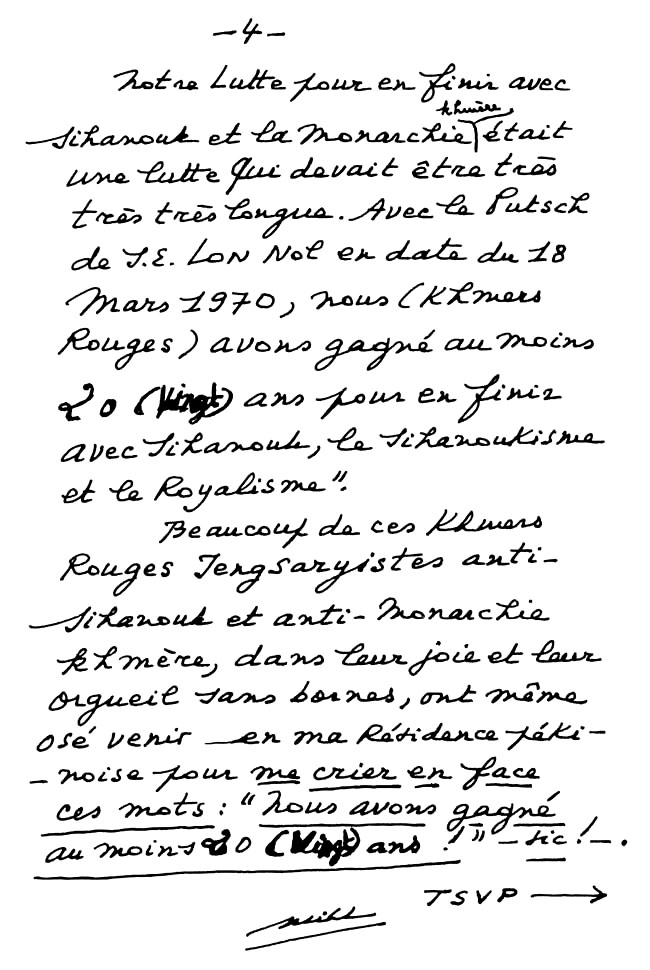 -4-
Notre Lutte pour en finir avec
khmère
Sihanouk et la Monarchie était
une lutte Qui devait être très
très très longue. Avec le Putsch
de S.E. LON Nol en date du 18
Mars 1970, nous (Khmers
Rouges) avons gagné au moins
20 (Vingt) ans pour en finir
avec Sihanouk, le Sihanoukisme
et le Royalisme".
Beaucoup de ces Khmers
Rouges Iengsaryistes anti-
Sihanouk et anti-Monarchie
khmère, dans leur joie et leur
Orgueil sans bornes, ont même
osé venir en ma Résidence péki-
-noise pour me crier en face
ces mots : "Nous avons gagné
au moins 20 (Vingt) ans !" - sic ! - .
TSVP →